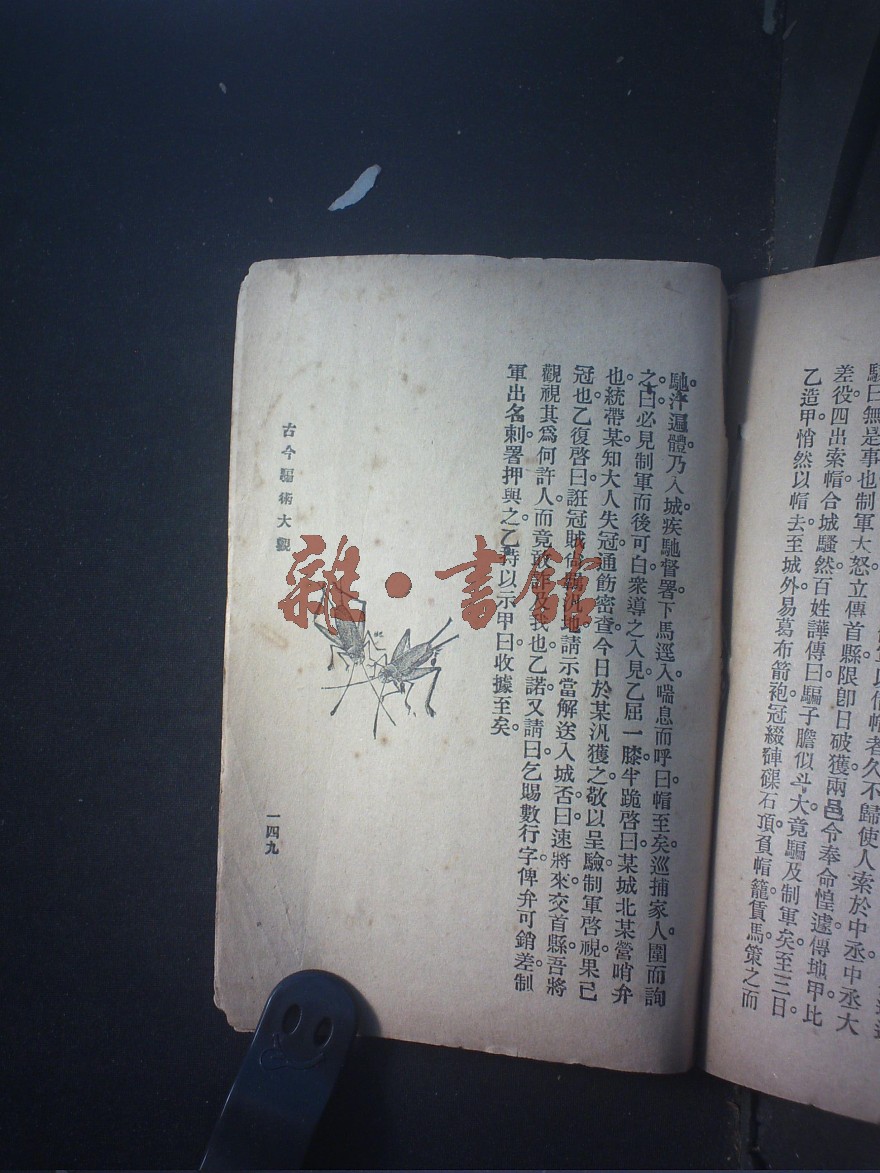 差役四出索帽合城騷然百姓譁傳曰騙子膽似斗大竟騙及制軍矣至三日。
乙造甲悄然以帽去至城外易葛布箭袍冠綴硨磲石頂負帽籠賃馬策之而
馳。汗遍體乃入城疾馳督署下馬逕入喘息而呼曰帽至矣。巡捕家人圍而詢
之。白必見制軍而後可白衆導之入見。乙屈一膝半跪啓曰某城北某營哨弁
也。統帶某知大人失冠通飭密查今日於某汛獲之。敬以呈驗制軍啓視果己
冠也。乙復啓曰誑冠賊尙
地請示當解送入城否。曰速將來交首縣。吾將
觀視其爲何許人而竟敢
我也。乙諾又請曰乞賜數行字俾弁可銷差。制
軍出名刺署押與之。乙
以示甲曰收據至矣。
古今騙術大觀
一四九
雜·書館